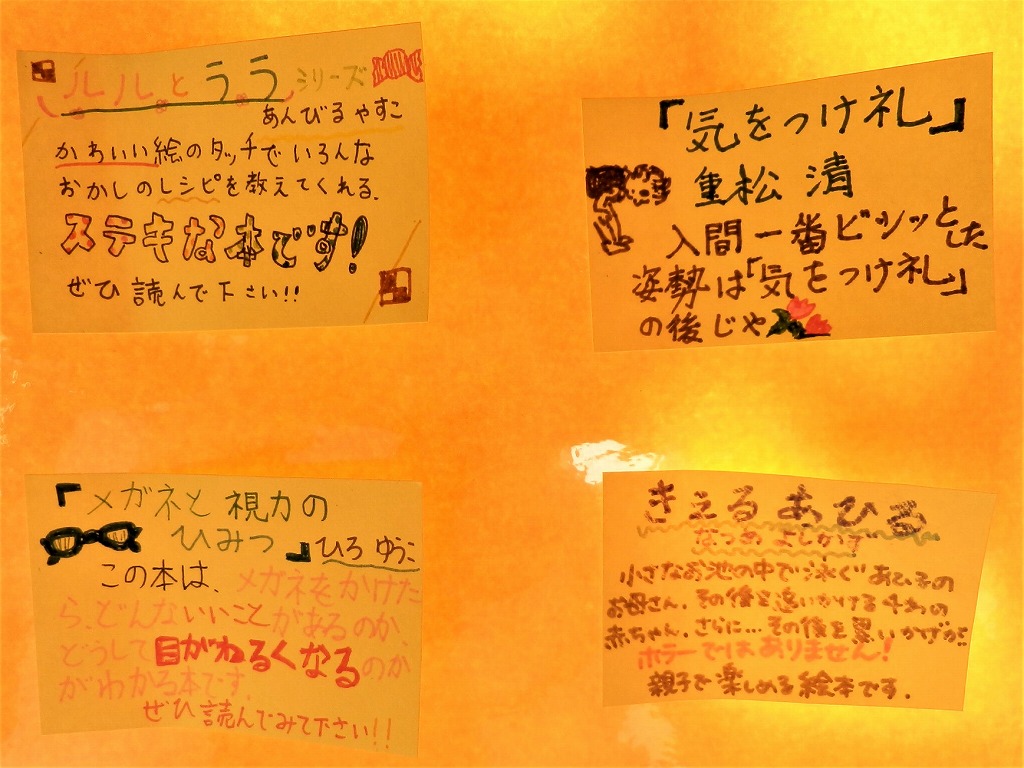 ルルとララシリーズ
あんびるやすこ
かわいい絵のタッチでいろんな
おかしのレシピを教えてくれる.
ステキな本です!
ぜひ読んで下さい!!
『気をつけ礼』
重松 清
人間一番ビシッとした
姿勢は「気をつけ礼」
の後じゃ
『メガネと視力の
ひみつ』ひろゆうこ
この本は、メガネをかけた
ら、どんないいことがあるのか、
どうして目がわるくなるのか
がわかる本です。
ぜひ読んでみて下さい!!
きえるあひる
なつめよしかず
小さなお池の中で泳ぐあひるの
お母さん.その後を追いかける
赤ちゃん.さらに…その後を
ホラーではありません!
親子で楽しめる絵本です.